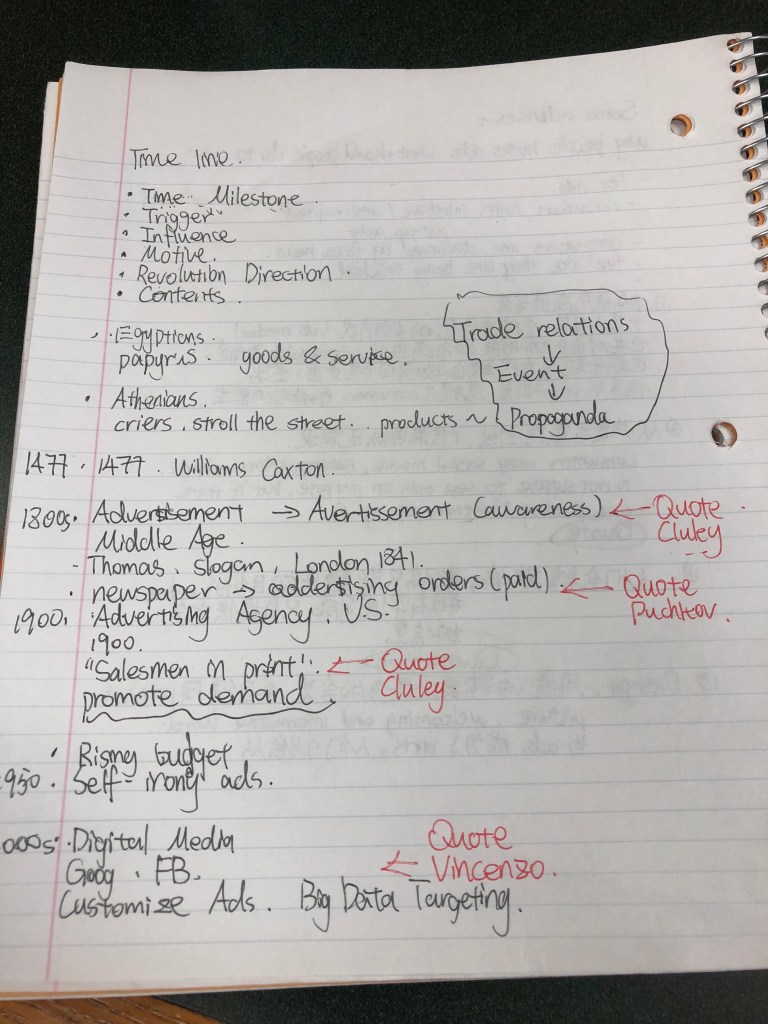 Time line.
• Time Milestone.
• Trigger
• Influence
• Motive.
• Revolution Direction.
• Contents.
• Egyptions.
papyrus. goods & service.
Trade relations
↓
Event
↓
Propoganda
• Athenians.
criers, stroll the street.. products ~
1477 • 1477. Williams Caxton.
1800s. Advertisement → Avertissement (awareness) ← Quote Cluley
Middle Age.
- Thomas, slogan, London 1841.
• newspaper → addertising orders (paid) ← Quote Puchkov.
1900. Advertising Agency, U.S.
1900.
"Salesmen in print". ← Quote Cluley.
promote demand.
• Rising budget
950. Self-irony ads.
000s. Digital Media
Goog. FB. ← Quote Vincenzo.
Customize Ads. Big Data Targeting.